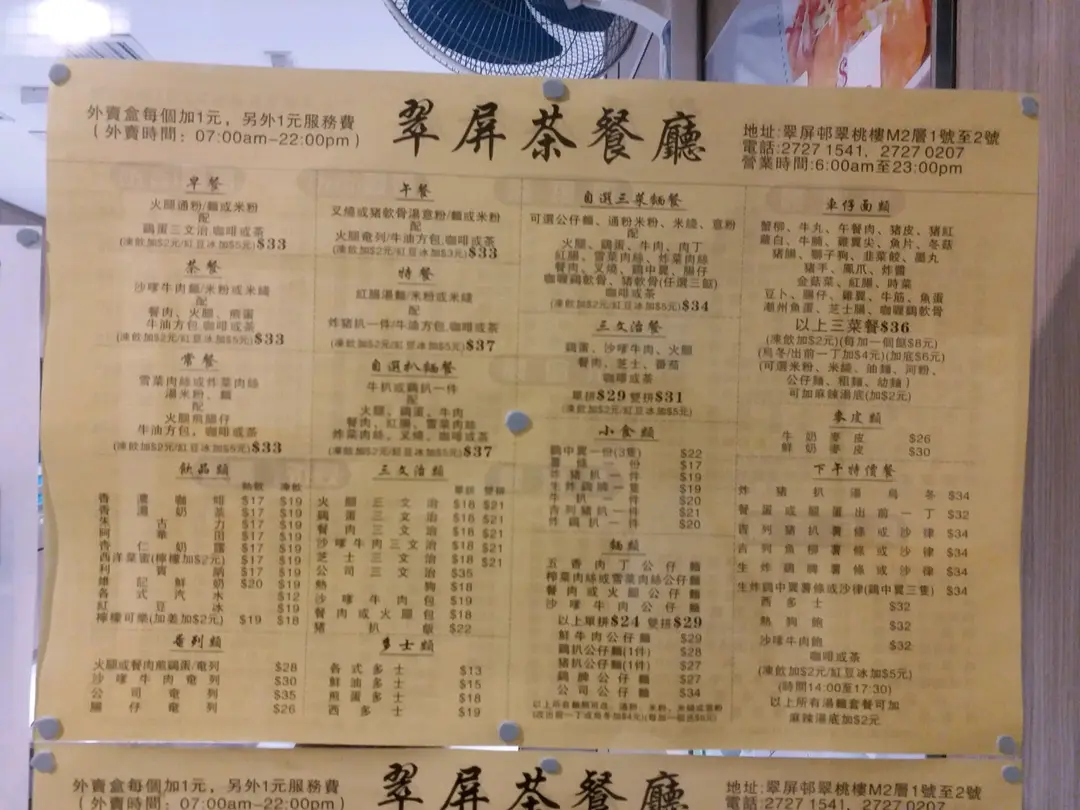 外賣盒每個加1元，另外1元服務費
（外賣時間：07:00am-22:00pm）
翠屏茶餐廳
地址:翠屏邨翠桃樓M2層1號至2號
電話:2727 1541, 2727 0207
營業時間:6:00am至23:00pm
早餐
火腿通粉/麵或米粉
配
鷄蛋三文治,咖啡或茶
(凍飲加$2元/紅豆冰加$5元)$33
茶餐
沙嗲牛肉麵/米粉或米線
配
餐肉、火腿、煎蛋
牛油方包,咖啡或茶
(凍飲加$2元/紅豆冰加$5元)$33
常餐
雪菜肉絲或炸菜肉絲
湯米粉、麵
配
火腿煎腸仔
牛油方包，咖啡或茶
(凍飲加$2元/紅豆冰加$5元)$33
午餐
叉燒或豬軟骨湯意粉/麵或米粉
配
火腿奄列/牛油方包,咖啡或茶
(凍飲加$2元/紅豆冰加$3元)$33
特餐
紅腸湯麵/米粉或米線
配
炸豬扒一件/牛油方包,咖啡或茶
(凍飲加$2元/紅豆冰加$5元)$37
自選扒麵餐
牛扒或鷄扒一件
配
火腿、鷄蛋、牛肉
餐肉、紅腸、雪菜肉絲
炸菜肉絲、叉燒、咖啡或茶
(凍飲加$2元/紅豆冰加$5元)$37
自選三菜麵餐
可選公仔麵、通粉米粉、米線、意粉
配
火腿、鷄蛋、牛肉、肉丁
紅腸、雪菜肉絲、炸菜肉絲
餐肉、叉燒、鷄中翼、腸仔
咖喱鷄軟骨、豬軟骨(任選三餸)
咖啡或茶
(凍飲加$2元/紅豆冰加$5元)$34
三文治餐
鷄蛋、沙嗲牛肉、火腿
餐肉、芝士、番茄
咖啡或茶
單拼$29 雙拼$31
(凍飲加$2元/紅豆冰加$5元)
小食類
鷄中翼一份(3隻) $22
薯條一份 $17
炸豬扒一件 $19
生炸鷄髀一隻 $19
牛扒一件 $20
吉列豬扒一件 $21
炸鷄扒一件 $20
麵類
五香肉丁公仔麵
榨菜肉絲或雪菜肉絲公仔麵
餐肉或火腿公仔麵
沙嗲牛肉公仔麵
以上單拼$24 雙拼$29
鮮牛肉公仔麵 $29
鷄扒公仔麵(1件) $28
豬扒公仔麵(1件) $27
鷄髀公仔麵 $27
公司公仔麵 $34
車仔面類
蟹柳、牛丸、午餐肉、豬皮、豬紅
蘿白、牛腩、雞翼尖、魚片、冬菇
豬腸、獅子狗、韭菜餃、墨丸
豬手、鳳爪、炸醬
金菇菜、紅腸、時菜
豆卜、腸仔、雞翼、牛筋、魚蛋
潮州魚蛋、芝士腸、咖喱鷄軟骨
以上三菜餐$36
(凍飲加$2元)(每加一個餸$8元)
(烏冬/出前一丁加$4元)(加底$6元)
(可選米粉、米線、油麵、河粉、
公仔麵、粗麵、幼麵)
可加麻辣湯底(加$2元)
麥皮類
牛奶麥皮 $26
鮮奶麥皮 $30
下午特價餐
炸豬扒湯烏冬 $34
餐蛋或腿蛋出前一丁 $32
吉列豬扒薯條或沙律 $34
吉列魚柳薯條或沙律 $34
生炸鷄髀薯條或沙律 $34
生炸鷄中翼薯條或沙律(鷄中翼三隻) $34
西多士 $32
熱狗飽 $32
沙嗲牛肉飽 $32
咖啡或茶
(凍飲加$2元/紅豆冰加$5元)
(時間14:00至17:30)
以上所有湯麵套餐可加
麻辣湯底加$2元
飲品類
熱飲 凍飲
香濃咖啡 $17 $19
香濃奶茶 $17 $19
朱古力 $17 $19
阿華田 $17 $19
杏仁奶露 $17 $19
西洋菜蜜(檸檬加$2元) $17 $19
利賓納 $17 $19
維記鮮奶 $20 $19
各式汽水 $12
紅豆冰 $19
檸檬可樂(加姜加$2元) $19 $18
三文治類
單拼 雙拼
火腿三文治 $18 $21
鷄蛋三文治 $18 $21
餐肉三文治 $18 $21
沙嗲牛肉三文治 $18 $21
芝士三文治 $18 $21
公司三文治 $35
熱狗 $18
沙嗲牛肉包 $19
餐肉或火腿包 $18
豬扒飽 $22
奄列類
火腿或餐肉煎鷄蛋/奄列 $28
沙嗲牛肉奄列 $30
公司奄列 $35
腸仔奄列 $26
多士類
各式多士 $13
鮮油多士 $15
煎蛋多士 $18
西多士 $19
外賣盒每個加1元，另外1元服務費
（外賣時間：07:00am-22:00pm）
翠屏茶餐廳
地址:翠屏邨翠桃樓M2層1號至2號
電話:2727 1541, 2727 0207